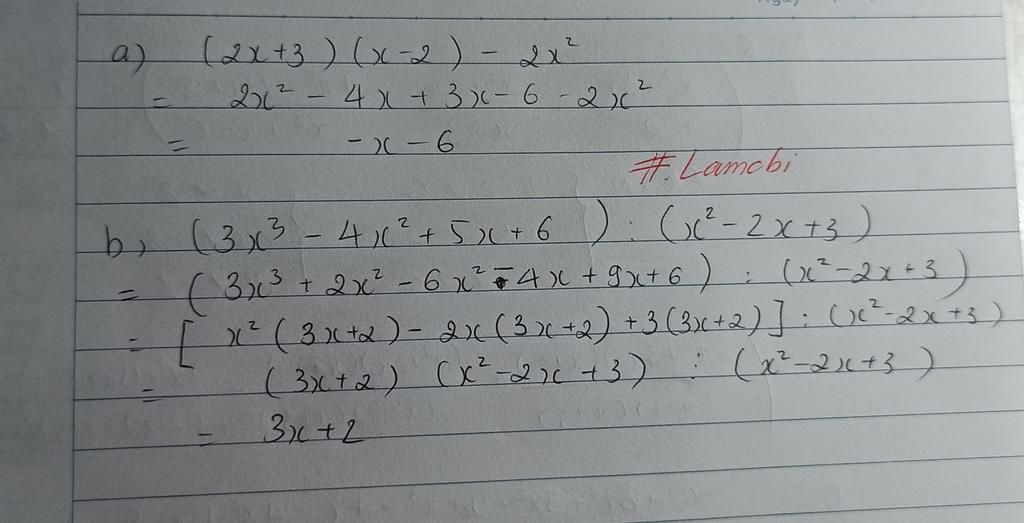 a) (2x+3)(x-2) - 2x²
= 2x² - 4x + 3x - 6 - 2x²
= -x - 6
#.Lamcbi
b, (3x³ - 4x² + 5x + 6) : (x² - 2x + 3)
= (3x³ + 2x² - 6x² - 4x + 9x + 6) : (x² - 2x + 3)
= [x²(3x+2) - 2x(3x+2) + 3(3x+2)] : (x² - 2x + 3)
= (3x+2) (x² - 2x + 3) : (x² - 2x + 3)
= 3x + 2